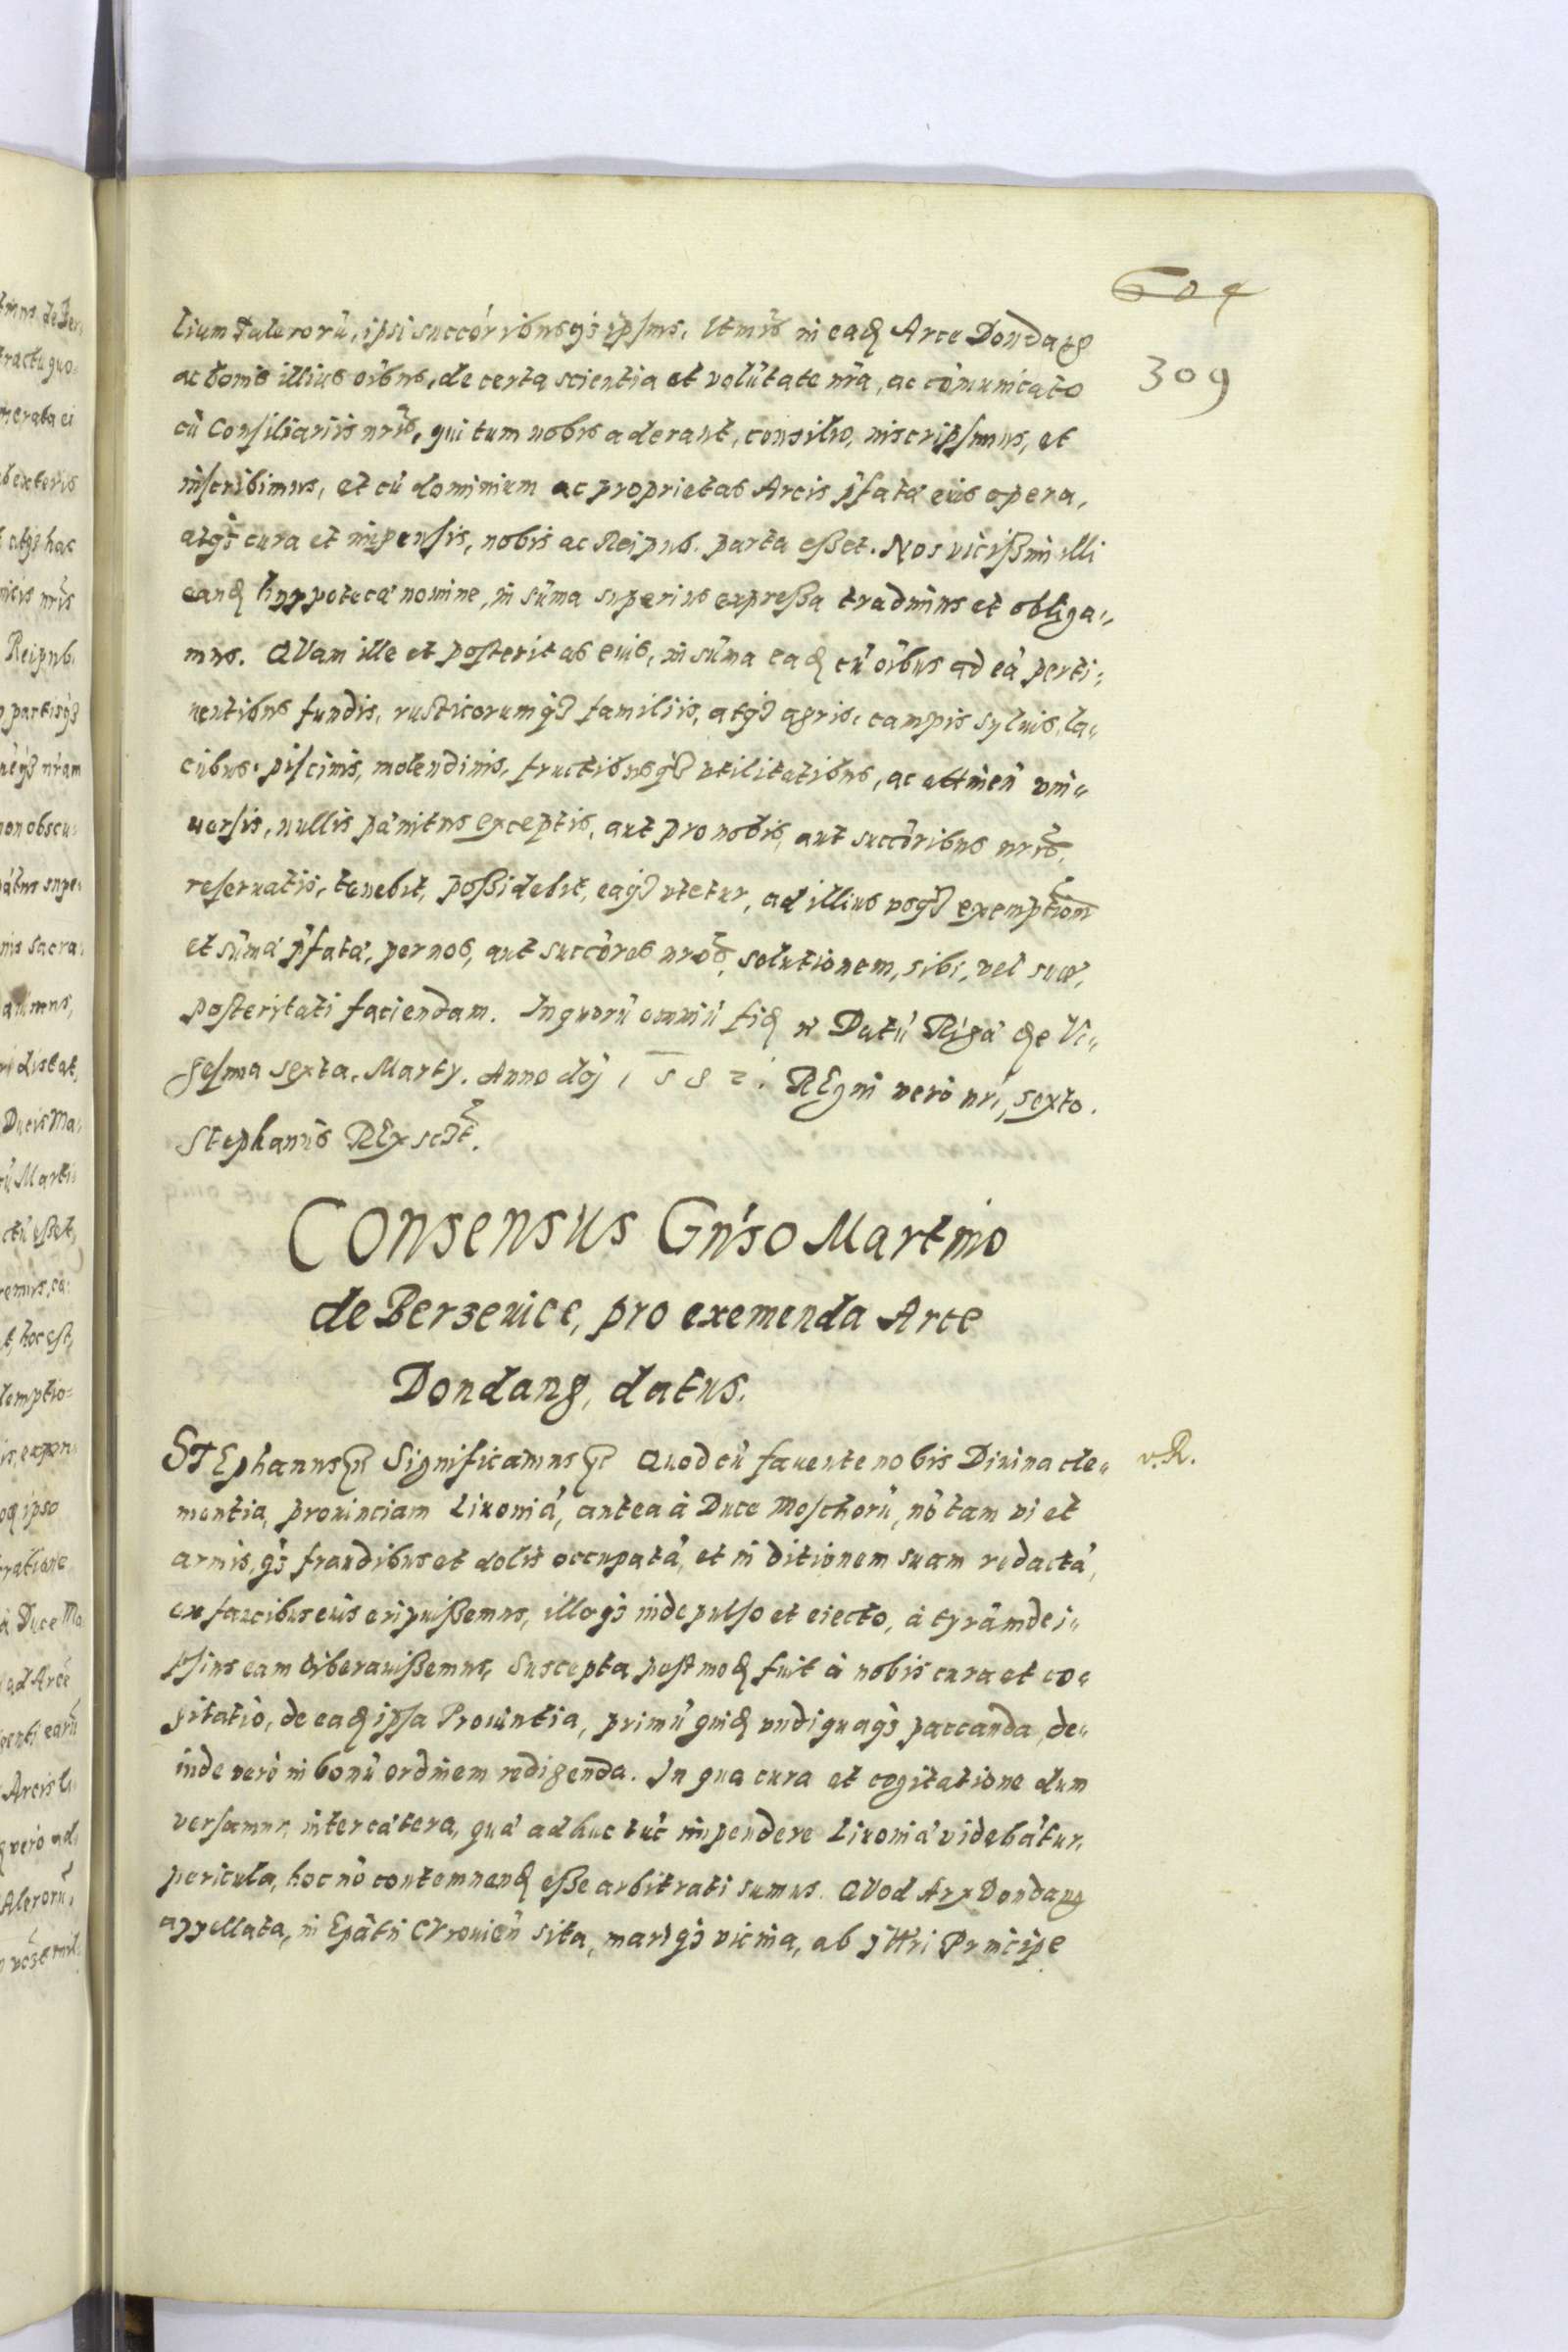 604
309
lium talerorũ, ipsi succóribusq́; ipsius, ltmis̃ in eadẽ Arce Dondag
ac bonis illius oĩbus, de certa scientia et volũtate nr̃a, ac cõmunicato
cũ Consiliariis nr̃is, qui tum nobis aderant, consilio, inscripsimus, et
inscribimus, et cũ dominium ac proprietas Arcis p̃fatæ eius opera,
atq́; cura et impensis, nobis ac Reipub. parta eßet. Nos vicißim illi
eandẽ hyppotecæ nomine, in sũma superius expreßa tradimus et obliga„
mus. QVam ille et posteritas eius, in sũma eadẽ cũ oĩbus ad eã perti„
nentibus fundis, rusticorumq́; familiis, atq́; agris, campis syluis, la„
cubus, piscinis, molendinis, fructibusq́; vtilitatibus, ac attineñ vni„
uersis, nullis pænitus exceptis, aut pro nobis, aut succõribus nr̃is,
reseruatis, tenebit, poßidebit, eaq́; vtetur, ad illius vsq́; exemptiõm
et sũmæ p̃fatæ, per nos, aut succõres nr̃os, solutionem, sibi, vel suæ,
posteritati faciendam. In quorũ omniũ fidẽ Datũ Rigæ die Vi„
gesima sexta, Marty. Anno dñj 1582. REgni vero nr̃i, sexto.
Stephanus REx scp̃t.
COnsensus Gn̄so Martino
de Berzeuice, pro exemenda Arce
Dondang, datus.
STEphanus &c Significamus &c Quod cũ fauente nobis Diuina cle„
v. R.
mentia, prouinciam Liuoniã, antea à Duce Moschorũ, nõ tam vi et
armis, q̃; fraudibus et dolis occupatã, et in ditionem suam redactã,
ex faucibus eius eripuißemus, illoq́; inde pulso et eiecto, à tyrãnide i„
psius eam liberauißemus, Suscepta postmodũ fuit à nobis cura et co„
gitatio, de eadẽ ipsa Prouintia, primũ quidẽ vndiquaq́; paccanda, de„
inde verò in bonũ ordinem redigenda. In qua cura et cogitatione dum
versamur, inter cætera, quæ adhuc tũc impendere Liuoniæ videbãtur,
pericula, hoc nõ contemnendũ eße arbitrati sumus. QVod Arx Dondang
appellata, in Epãtu CVronieñ sita, mariq́; vicina, ab Illri Principe